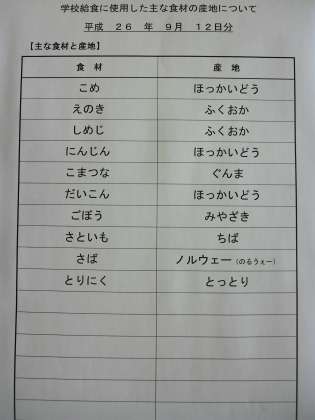 学校給食に使用した主な食材の産地について
平成 26 年 9月 12日分
【主な食材と産地】
食 材 産 地
こめ ほっかいどう
えのき ふくおか
しめじ ふくおか
にんじん ほっかいどう
こまつな ぐんま
だいこん ほっかいどう
ごぼう みやざき
さといも ちば
さば ノルウェー（のるうぇー）
とりにく とっとり